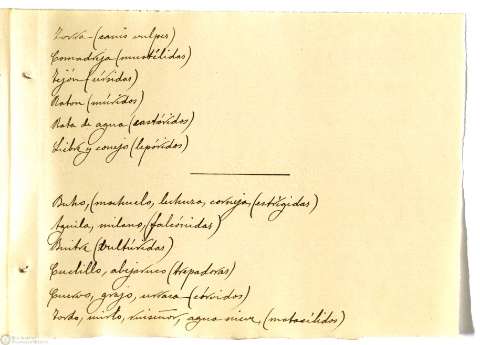 Zorra (canis vulpes)
Comadreja (mustélidas)
Tejón (úrsidas)
Raton (múridos)
Rata de agua (castóridos)
Liebre y conejo (lepóridos)
Buho, (mochuelo, lechuza, corneja (estrígidas)
Aguila, milano, (falcónidas)
Buitre (vultúridas)
Cuclillo, abejaruco (trepadoras)
Cuervo, grajo, urraca (córvidos)
Tordo, mirlo, ruiseñor, agua nieve (motacilidos)